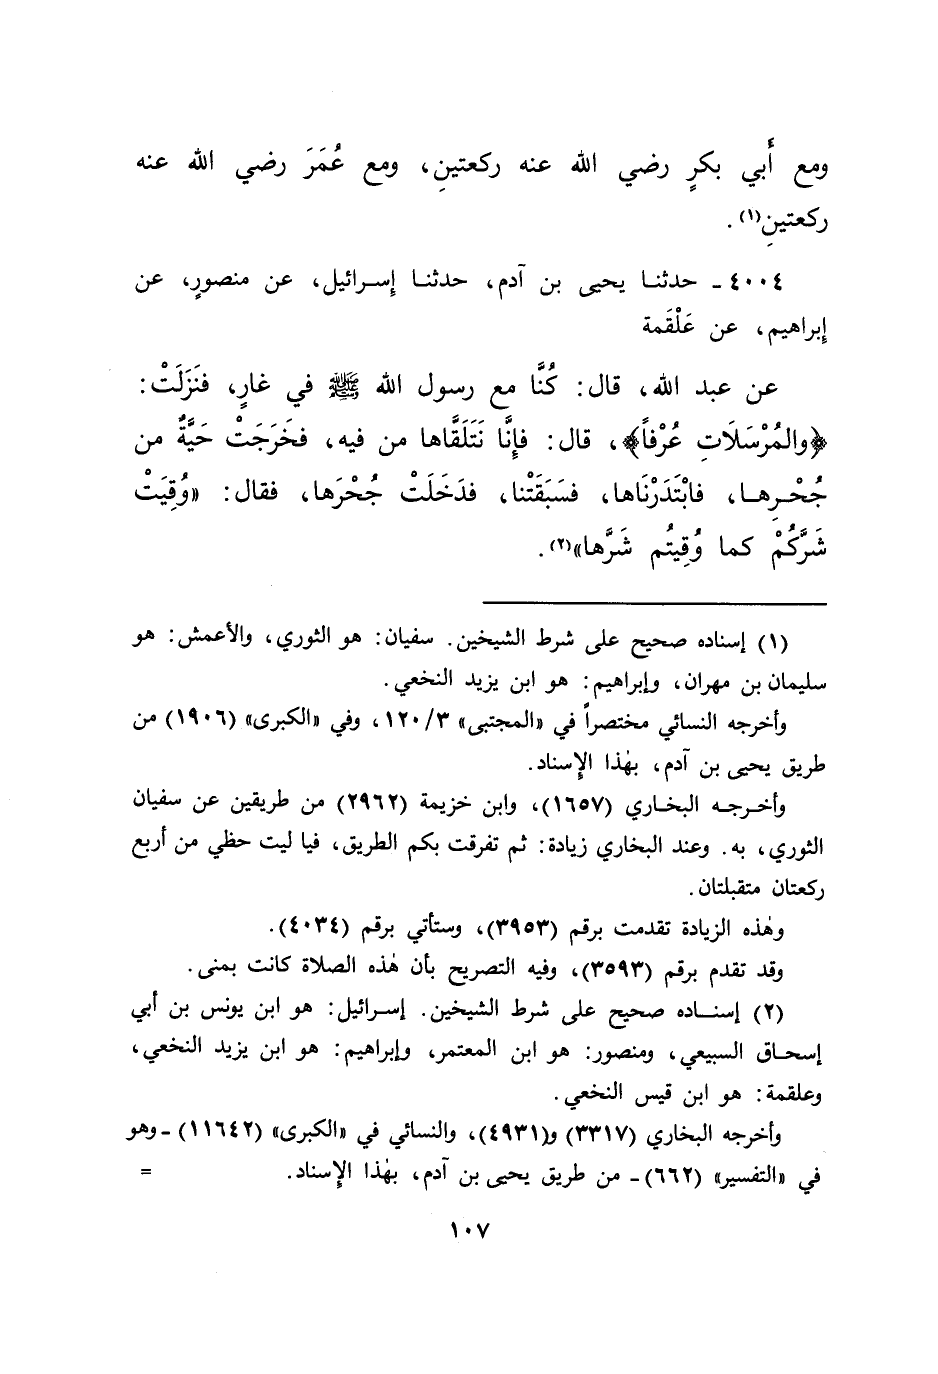 ومع أَبي بكرٍ رضي الله عنه ركعتينِ، ومع عُمَرَ رضي الله عنه
ركعتينِ(١).
٤٠٠٤ ـ حدثنا يحيى بن آدم، حدثنا إسرائيل، عن منصورٍ، عن
إبراهيم، عن عَلْقَمة
عن عبد الله، قال: كُنَّا مع رسول الله ﷺ في غارٍ، فنَزَلَتْ:
﴿والمُرْسَلَاتِ عُرْفاً﴾، قال: فإِنَّا نَتَلَقَّاها من فيه، فخَرَجَتْ حَيَّةٌ من
جُحْرِها، فابْتَدَرْنَاها، فسَبَقَتْنا، فدَخَلَتْ جُحْرَها، فقال: «وُقِيَتْ
شَرَّكُمْ كما وُقِيتُم شَرَّها»(٢).
(١) إسناده صحيح على شرط الشيخين. سفيان: هو الثوري، والأعمش: هو
سليمان بن مهران، وإبراهيم: هو ابن يزيد النخعي.
وأخرجه النسائي مختصراً في «المجتبى» ١٢٠/٣، وفي «الكبرى» (١٩٠٦) من
طريق يحيى بن آدم، بهٰذا الإسناد.
وأخرجه البخاري (١٦٥٧)، وابن خزيمة (٢٩٦٢) من طريقين عن سفيان
الثوري، به. وعند البخاري زيادة: ثم تفرقت بكم الطريق، فيا ليت حظي من أربع
ركعتان متقبلتان.
وهٰذه الزيادة تقدمت برقم (٣٩٥٣)، وستأتي برقم (٤٠٣٤).
وقد تقدم برقم (٣٥٩٣)، وفيه التصريح بأن هٰذه الصلاة كانت بمنى.
(٢) إسناده صحيح على شرط الشيخين. إسرائيل: هو ابن يونس بن أبي
إسحاق السبيعي، ومنصور: هو ابن المعتمر، وإبراهيم: هو ابن يزيد النخعي،
وعلقمة: هو ابن قيس النخعي.
وأخرجه البخاري (٣٣١٧) و(٤٩٣١)، والنسائي في «الكبرى» (١١٦٤٢) ـ وهو
في «التفسير» (٦٦٢) ـ من طريق يحيى بن آدم، بهٰذا الإسناد. =
١٠٧